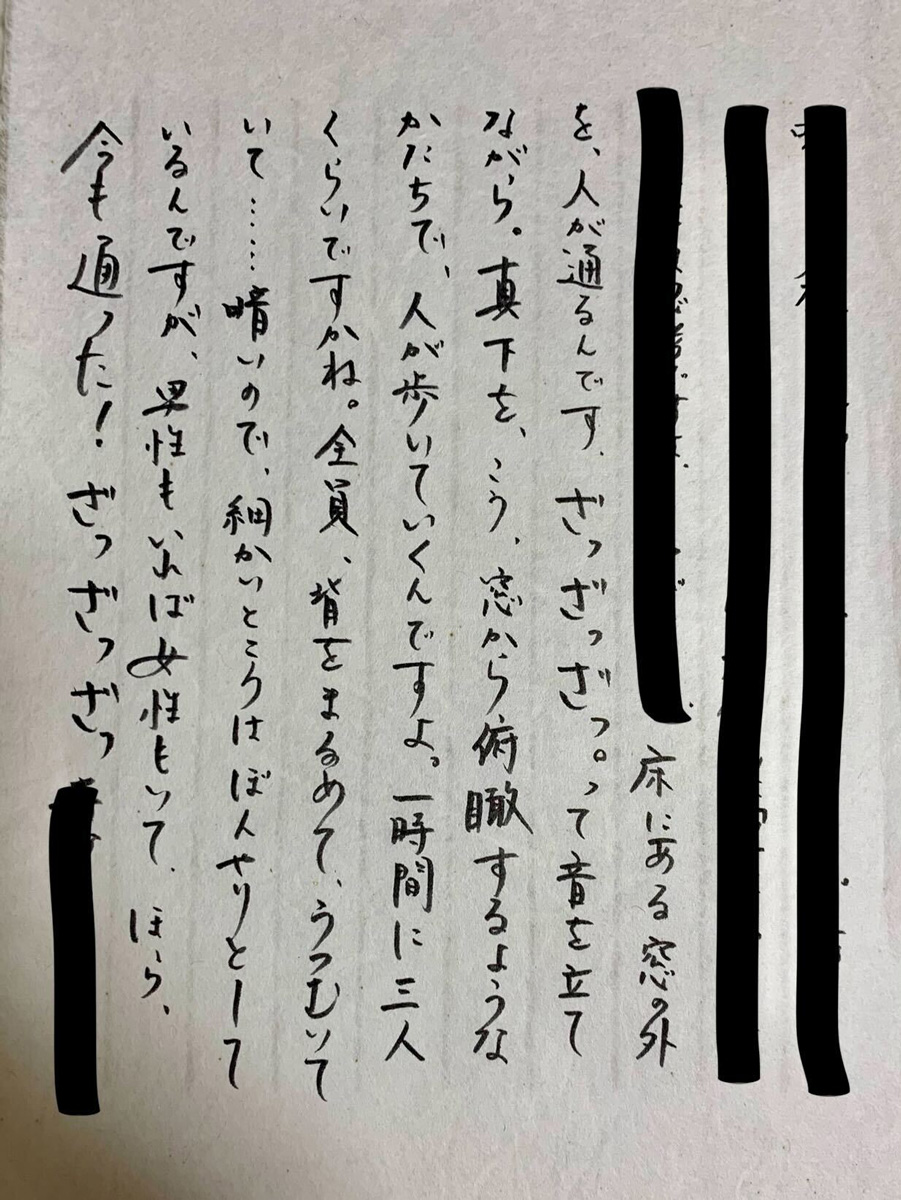 床にある窓の外
を、人が通るんです。ざっざっざっ。って音を立て
ながら。真下を、こう、窓から俯瞰するような
かたちで、人が歩いていくんですよ。一時間に三人
くらいですかね。全員、背をまるめて、うつむいて
いて……暗いので、細かいところはぼんやりとして
いるんですが、男性もいれば女性もいて、ほら、
今も通った！ざっざっざっ